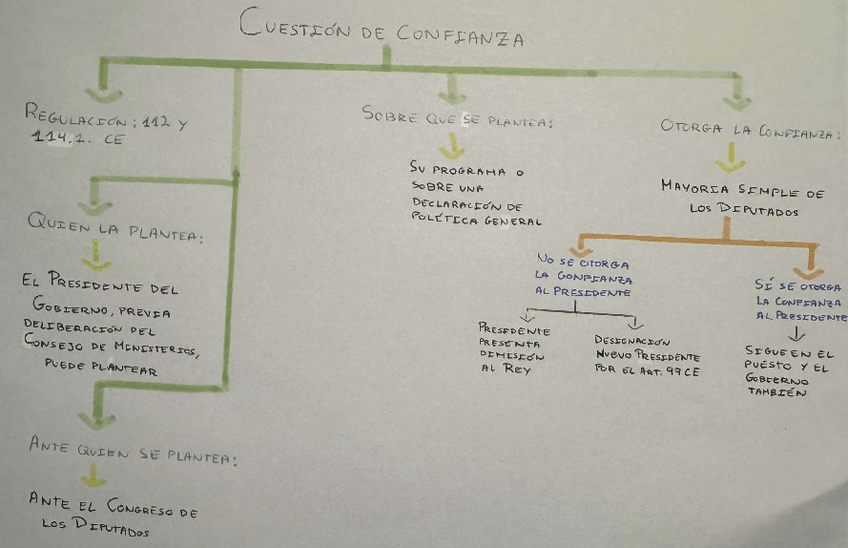 CUESTIÓN DE CONFIANZA
REGULACIÓN: 112 Y
114.1. CE
QUIEN LA PLANTEA:
EL PRESIDENTE DEL
GOBIERNO, PREVIA
DELIBERACIÓN DEL
CONSEJO DE MINISTERIOS,
PUEDE PLANTEAR
ANTE QUIEN SE PLANTEA:
ANTE EL CONGRESO DE
LOS DIPUTADOS
SOBRE QUE SE PLANTEA:
SU PROGRAMA O
SOBRE UNA
DECLARACIÓN DE
POLÍTICA GENERAL
OTORGA LA CONFIANZA:
MAYORIA SIMPLE DE
LOS DIPUTADOS
NO SE OTORGA
LA CONFIANZA
AL PRESIDENTE
PRESIDENTE
PRESENTA
DIMISIÓN
AL REY
DESIGNACIÓN
NUEVO PRESIDENTE
POR EL ART. 99 CE
SÍ SE OTORGA
LA CONFIANZA
AL PRESIDENTE
SIGUE EN EL
PUESTO Y EL
GOBIERNO
TAMBIÉN